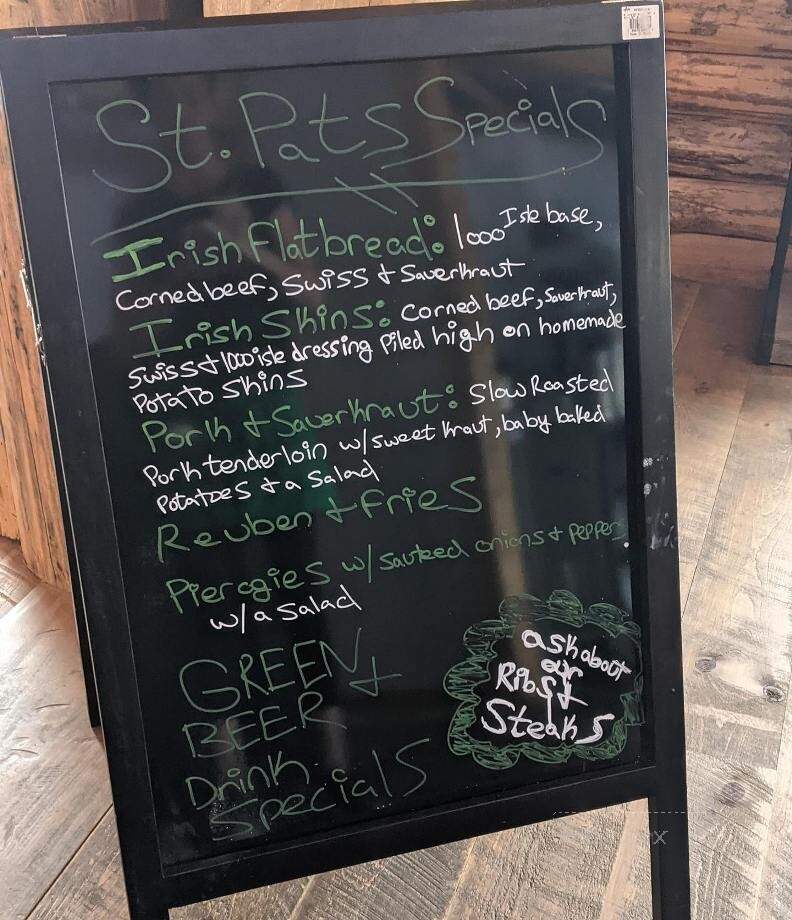 St. Pats Specials
Irish flatbread: 1000 Isle base,
Corned beef, Swiss + Sauerkraut
Irish Skins: Corned beef, Sauerkraut,
Swiss + 1000 isle dressing Piled high on homemade
Potato Skins
Pork + Sauerkraut: Slow Roasted
Pork tenderloin w/ sweet kraut, baby baked
Potatoes + a Salad
Reuben + fries
Pierogies w/ sauteed onions + peppers
w/ a Salad
GREEN
BEER +
Drink
Specials
ask about
our
Ribs +
Steaks